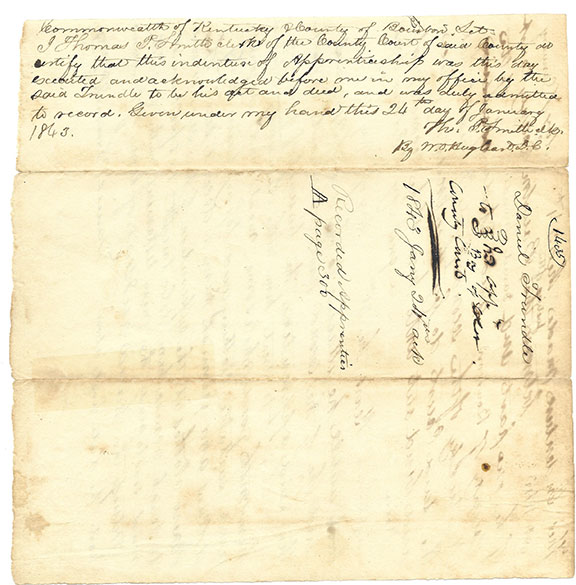 Commonwealth of Kentucky & County of Bourbon Sct
I Thomas P. Smith clerk of the County Court of said County do
certify that this indenture of Apprenticeship was this day
executed and acknowledged before me in my office by the
said Trundle to be his act and deed, and was duly admitted
to record. Given under my hand this 24th day of January
1843.
Tho. P. Smith clk
By
(1435)
Daniel Trundle
to
By order
County Court.
1843 Jany 24 ack
Recorded Apprentice
A page 300